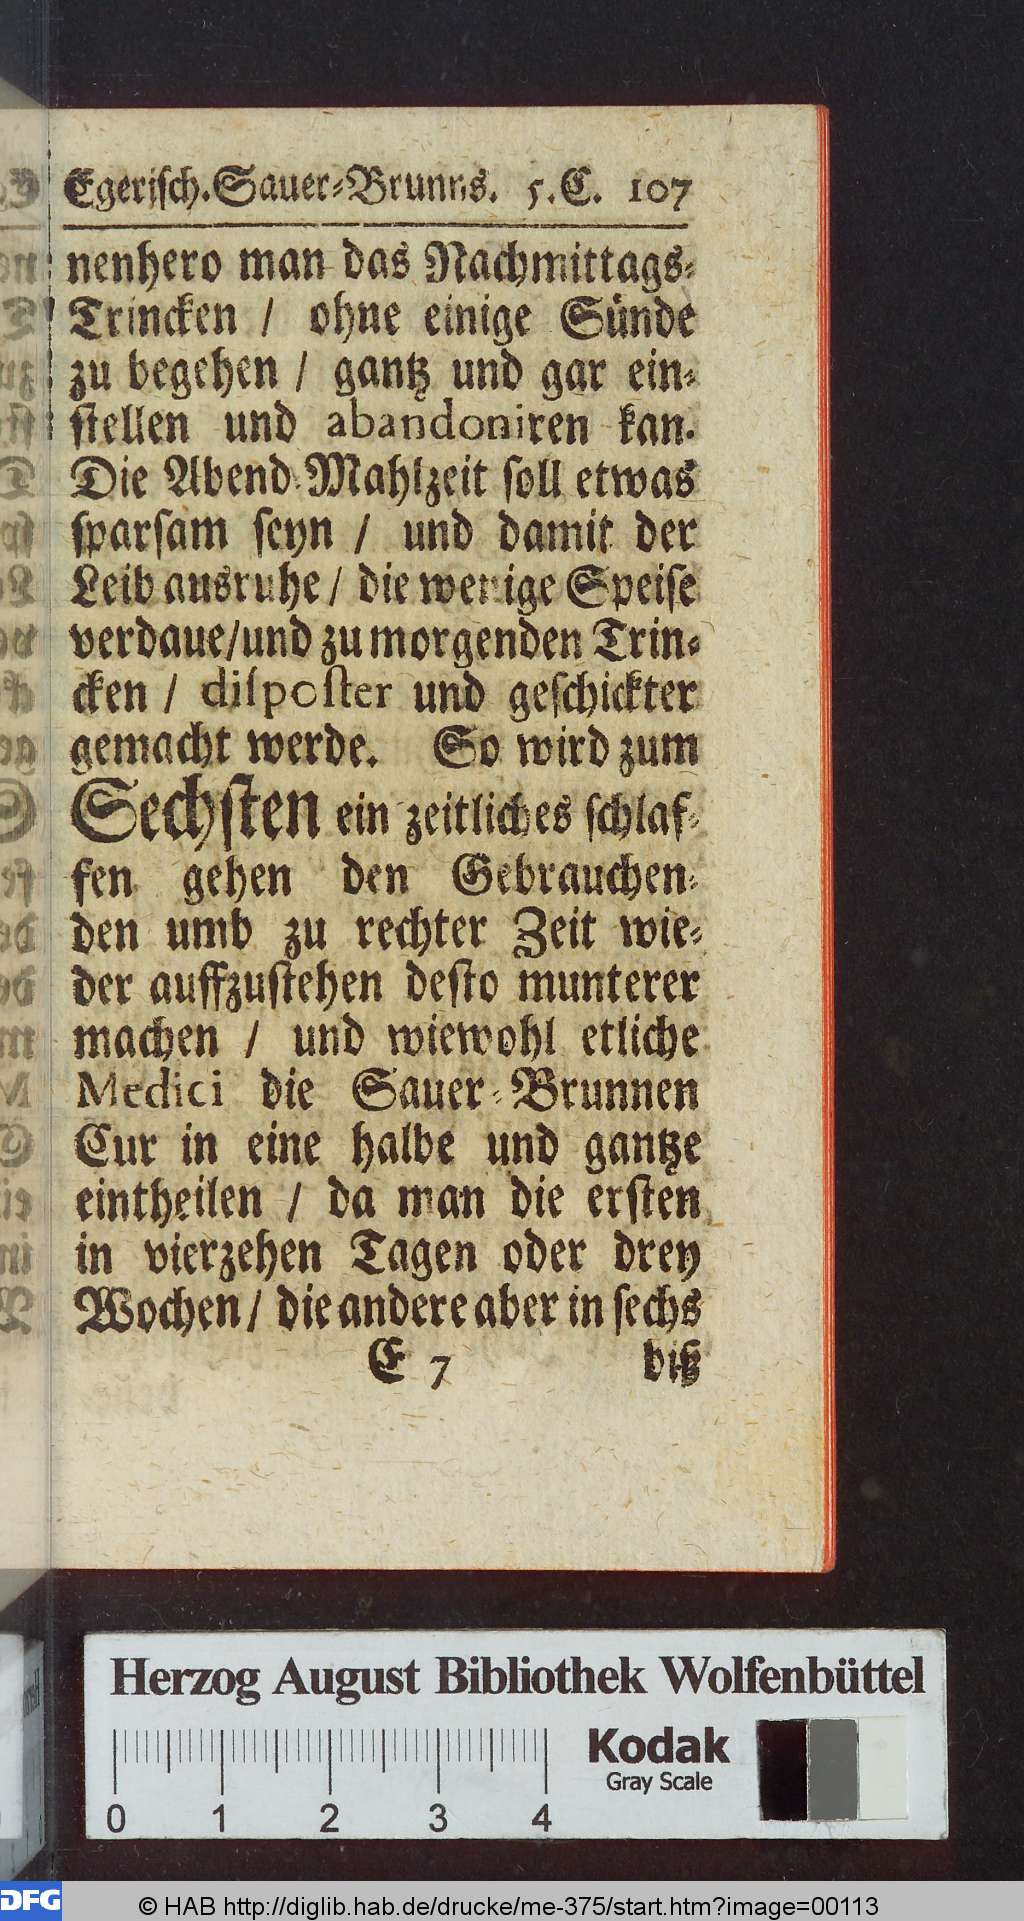 Egerisch. Sauer-Brunns. 5. C. 107
nenhero man das Nachmittags-
Trincken / ohne einige Sünde
zu begehen / gantz und gar ein-
stellen und abandoniren kan.
Die Abend-Mahlzeit soll etwas
sparsam seyn / und damit der
Leib ausruhe / die wenige Speise
verdaue/und zu morgenden Trin-
cken / disposter und geschickter
gemacht werde. So wird zum
Sechsten ein zeitliches schlaf-
fen gehen den Gebrauchen-
den umb zu rechter Zeit wie-
der auffzustehen desto munterer
machen / und wiewohl etliche
Medici die Sauer-Brunnen
Cur in eine halbe und gantze
eintheilen / da man die ersten
in vierzehen Tagen oder drey
Wochen / die andere aber in sechs
E 7 biß
Herzog August Bibliothek Wolfenbüttel
Kodak
Gray Scale
0 1 2 3 4
DFG © HAB http://diglib.hab.de/drucke/me-375/start.htm?image=00113